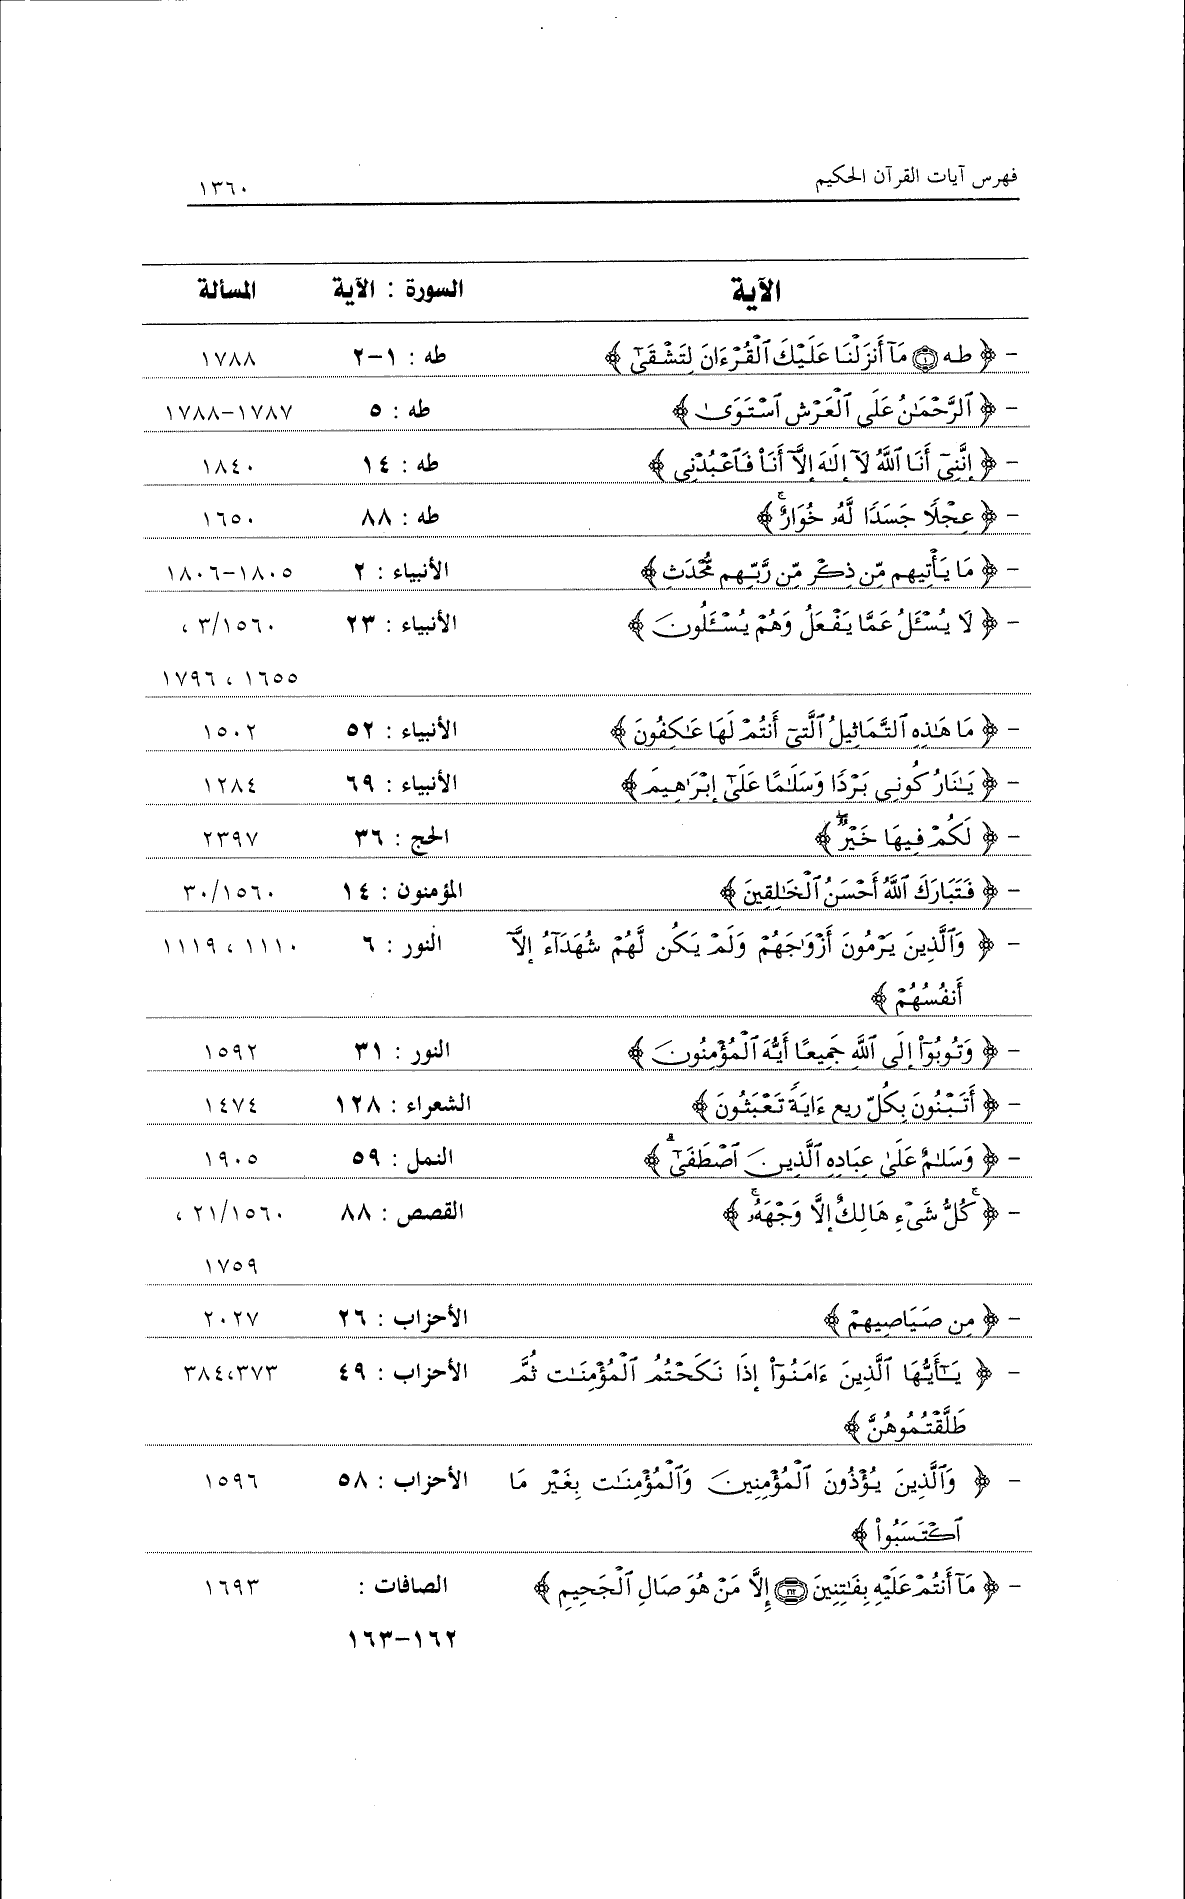 فهرس آيات القرآن الحكيم ١٣٦٠
الآية السورة : الآية المسألة
- ﴿ طه ۝١ مَآ أَنزَلْنَا عَلَيْكَ ٱلْقُرْءَانَ لِتَشْقَىٰٓ ﴾ طه : ١-٢ ١٧٨٨
- ﴿ ٱلرَّحْمَـٰنُ عَلَى ٱلْعَرْشِ ٱسْتَوَىٰ ﴾ طه : ٥ ١٧٨٧-١٧٨٨
- ﴿ إِنَّنِىٓ أَنَا ٱللَّهُ لَآ إِلَـٰهَ إِلَّآ أَنَا۠ فَٱعْبُدْنِى ﴾ طه : ١٤ ١٨٤٠
- ﴿ عِجْلًا جَسَدًا لَّهُۥ خُوَارٌ ۚ ﴾ طه : ٨٨ ١٦٥٠
- ﴿ مَا يَأْتِيهِم مِّن ذِكْرٍ مِّن رَّبِّهِم مُّحْدَثٍ ﴾ الأنبياء : ٢ ١٨٠٥-١٨٠٦
- ﴿ لَا يُسْـَٔلُ عَمَّا يَفْعَلُ وَهُمْ يُسْـَٔلُونَ ﴾ الأنبياء : ٢٣ ٣/١٥٦٠ ،
١٦٥٥ ، ١٧٩٦
- ﴿ مَا هَـٰذِهِ ٱلتَّمَاثِيلُ ٱلَّتِىٓ أَنتُمْ لَهَا عَـٰكِفُونَ ﴾ الأنبياء : ٥٢ ١٥٠٢
- ﴿ يَـٰنَارُ كُونِى بَرْدًا وَسَلَـٰمًا عَلَىٰٓ إِبْرَٰهِيمَ ﴾ الأنبياء : ٦٩ ١٢٨٤
- ﴿ لَكُمْ فِيهَا خَيْرٌ ۖ ﴾ الحج : ٣٦ ٢٣٩٧
- ﴿ فَتَبَارَكَ ٱللَّهُ أَحْسَنُ ٱلْخَـٰلِقِينَ ﴾ المؤمنون : ١٤ ٣٠/١٥٦٠
- ﴿ وَٱلَّذِينَ يَرْمُونَ أَزْوَٰجَهُمْ وَلَمْ يَكُن لَّهُمْ شُهَدَآءُ إِلَّآ النور : ٦ ١١١٠ ، ١١١٩
أَنفُسُهُمْ ﴾
- ﴿ وَتُوبُوٓا۟ إِلَى ٱللَّهِ جَمِيعًا أَيُّهَ ٱلْمُؤْمِنُونَ ﴾ النور : ٣١ ١٥٩٢
- ﴿ أَتَبْنُونَ بِكُلِّ رِيعٍ ءَايَةً تَعْبَثُونَ ﴾ الشعراء : ١٢٨ ١٤٧٤
- ﴿ وَسَلَـٰمٌ عَلَىٰ عِبَادِهِ ٱلَّذِينَ ٱصْطَفَىٰٓ ۗ ﴾ النمل : ٥٩ ١٩٠٥
- ﴿ كُلُّ شَىْءٍ هَالِكٌ إِلَّا وَجْهَهُۥ ۚ ﴾ القصص : ٨٨ ٢١/١٥٦٠ ،
١٧٥٩
- ﴿ مِن صَيَاصِيهِمْ ﴾ الأحزاب : ٢٦ ٢٠٢٧
- ﴿ يَـٰٓأَيُّهَا ٱلَّذِينَ ءَامَنُوٓا۟ إِذَا نَكَحْتُمُ ٱلْمُؤْمِنَـٰتِ ثُمَّ الأحزاب : ٤٩ ٣٧٣،٣٨٤
طَلَّقْتُمُوهُنَّ ﴾
- ﴿ وَٱلَّذِينَ يُؤْذُونَ ٱلْمُؤْمِنِينَ وَٱلْمُؤْمِنَـٰتِ بِغَيْرِ مَا الأحزاب : ٥٨ ١٥٩٦
ٱكْتَسَبُوا۟ ﴾
- ﴿ مَآ أَنتُمْ عَلَيْهِ بِفَـٰتِنِينَ ۝١٦٢ إِلَّا مَنْ هُوَ صَالِ ٱلْجَحِيمِ ﴾ الصافات : ١٦٩٣
١٦٢-١٦٣